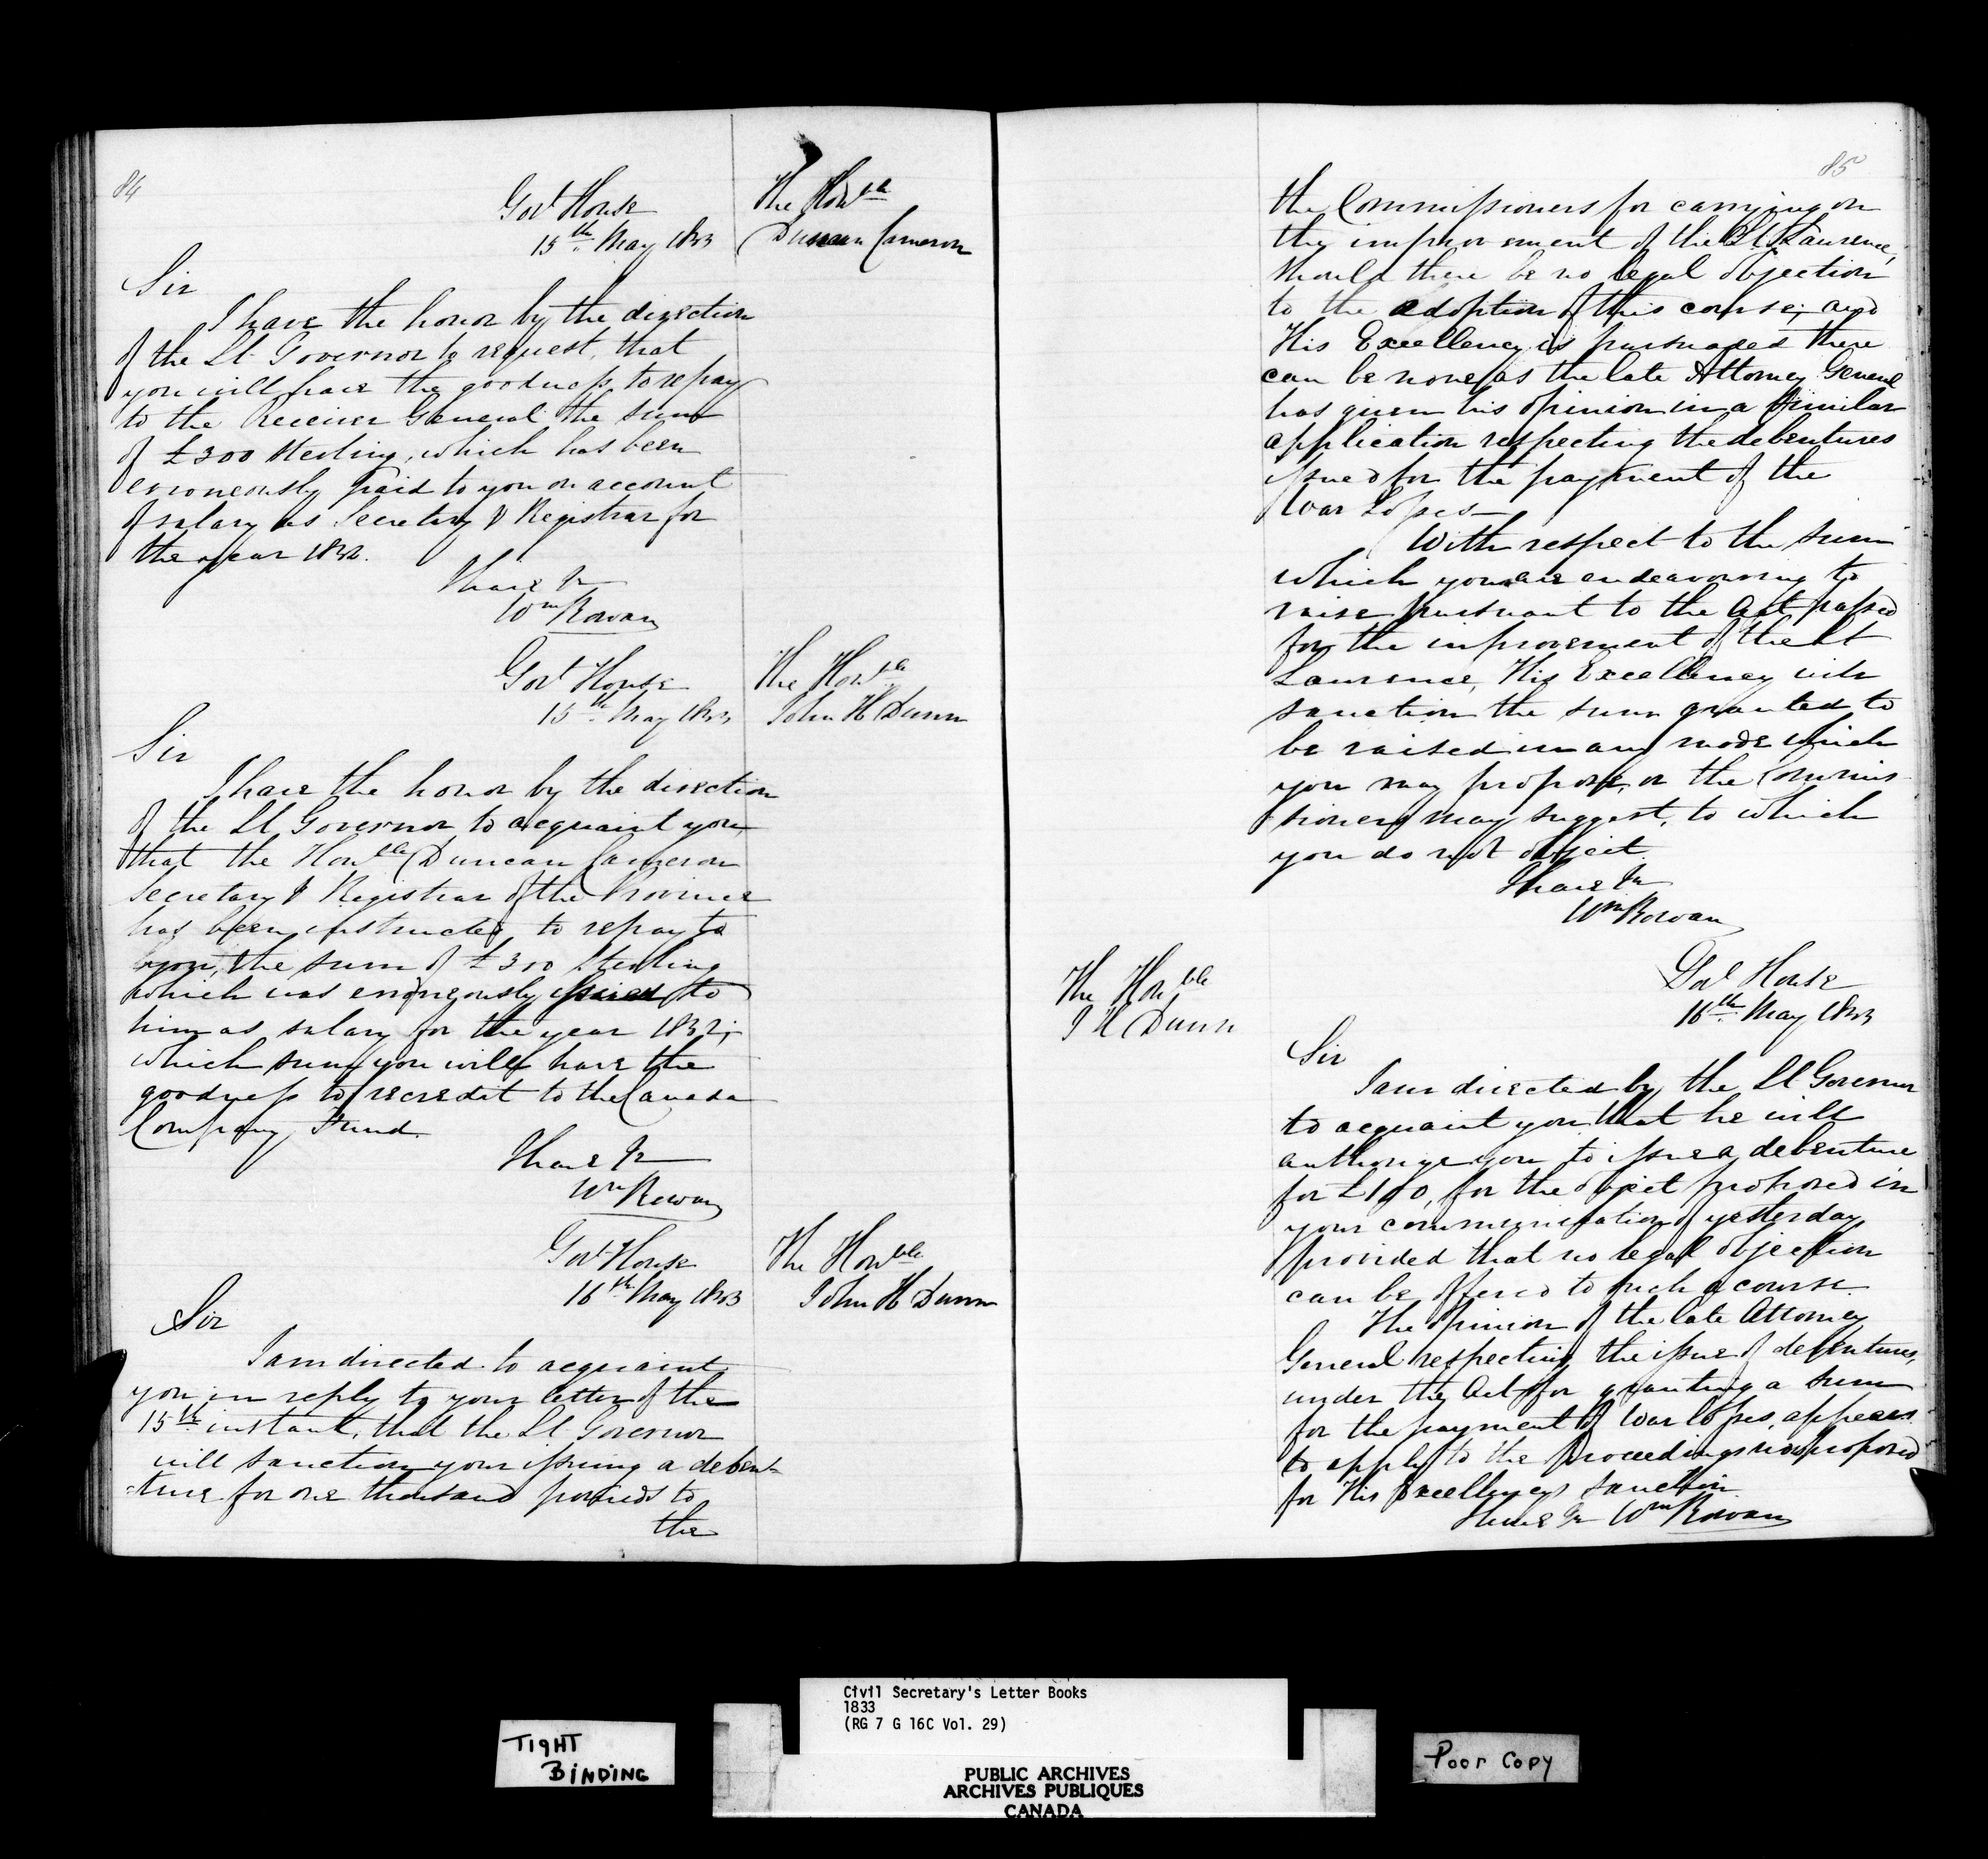 84
Govt House
15th May 1833
The Honble
Duncan Cameron
Sir
I have the honor by the direction
of the Lt Governor to request, that
you will have the goodness to repay
to the Receiver General the sum
of £300 Sterling, which has been
erroneously paid to you on account
of salary as Secretary & Registrar for
the year 1832.
I have &c
Wm Rowan
Govt House
15th May 1833
The Honble
John H Dunn
Sir
I have the honor by the direction
of the Lt Governor to acquaint you
that the Honble Duncan Cameron
Secretary & Registrar of the Province
has been instructed to repay to
you, the sum of £300 Sterling
which was erroneously issued to
him as salary for the year 1832;
which sum you will have the
goodness to recredit to the Canada
Company Fund.
I have &c
Wm Rowan
Govt House
16th May 1833
The Honble
John H Dunn
Sir
I am directed to acquaint
you in reply to your letter of the
15th instant, that the Lt Governor
will sanction your issuing a deben-
-ture for one thousand pounds to
the
85
the Commissioners for carrying on
the improvement of the St Laurence,
should there be no legal objection
to the adoption of this course; and
His Excellency is pursuaded there
can be none as the late Attorney General
has given his opinion in a similar
application respecting the debentures
issued for the payment of the
War Losses
With respect to the sum
which you are endeavouring to
raise pursuant to the Act passed
for the improvement of the St
Laurence, His Excellency will
sanction the sum granted to
be raised in any mode which
you may propose, or the Commis
sioners may suggest, to which
you do not object.
I have &c
Wm Rowan
Govt House
16th May 1833
The Honble
J H Dunn
Sir
I am directed by the Lt Governor
to acquaint you that he will
authorize you to issue a debenture
for £100, for the object proposed in
your communication of yesterday
provided that no legal objection
can be offered to such a course.
The opinion of the late Attorney
General respecting the issue of debentures,
under the Act for granting a sum
for the payment of War losses, appears
to apply to the proceedings now proposed
for His Excellencys sanction
I have &c Wm Rowan
Civil Secretary's Letter Books
1833
(RG 7 G 16C Vol. 29)
TIGHT
BINDING
Poor Copy
PUBLIC ARCHIVES
ARCHIVES PUBLIQUES
CANADA